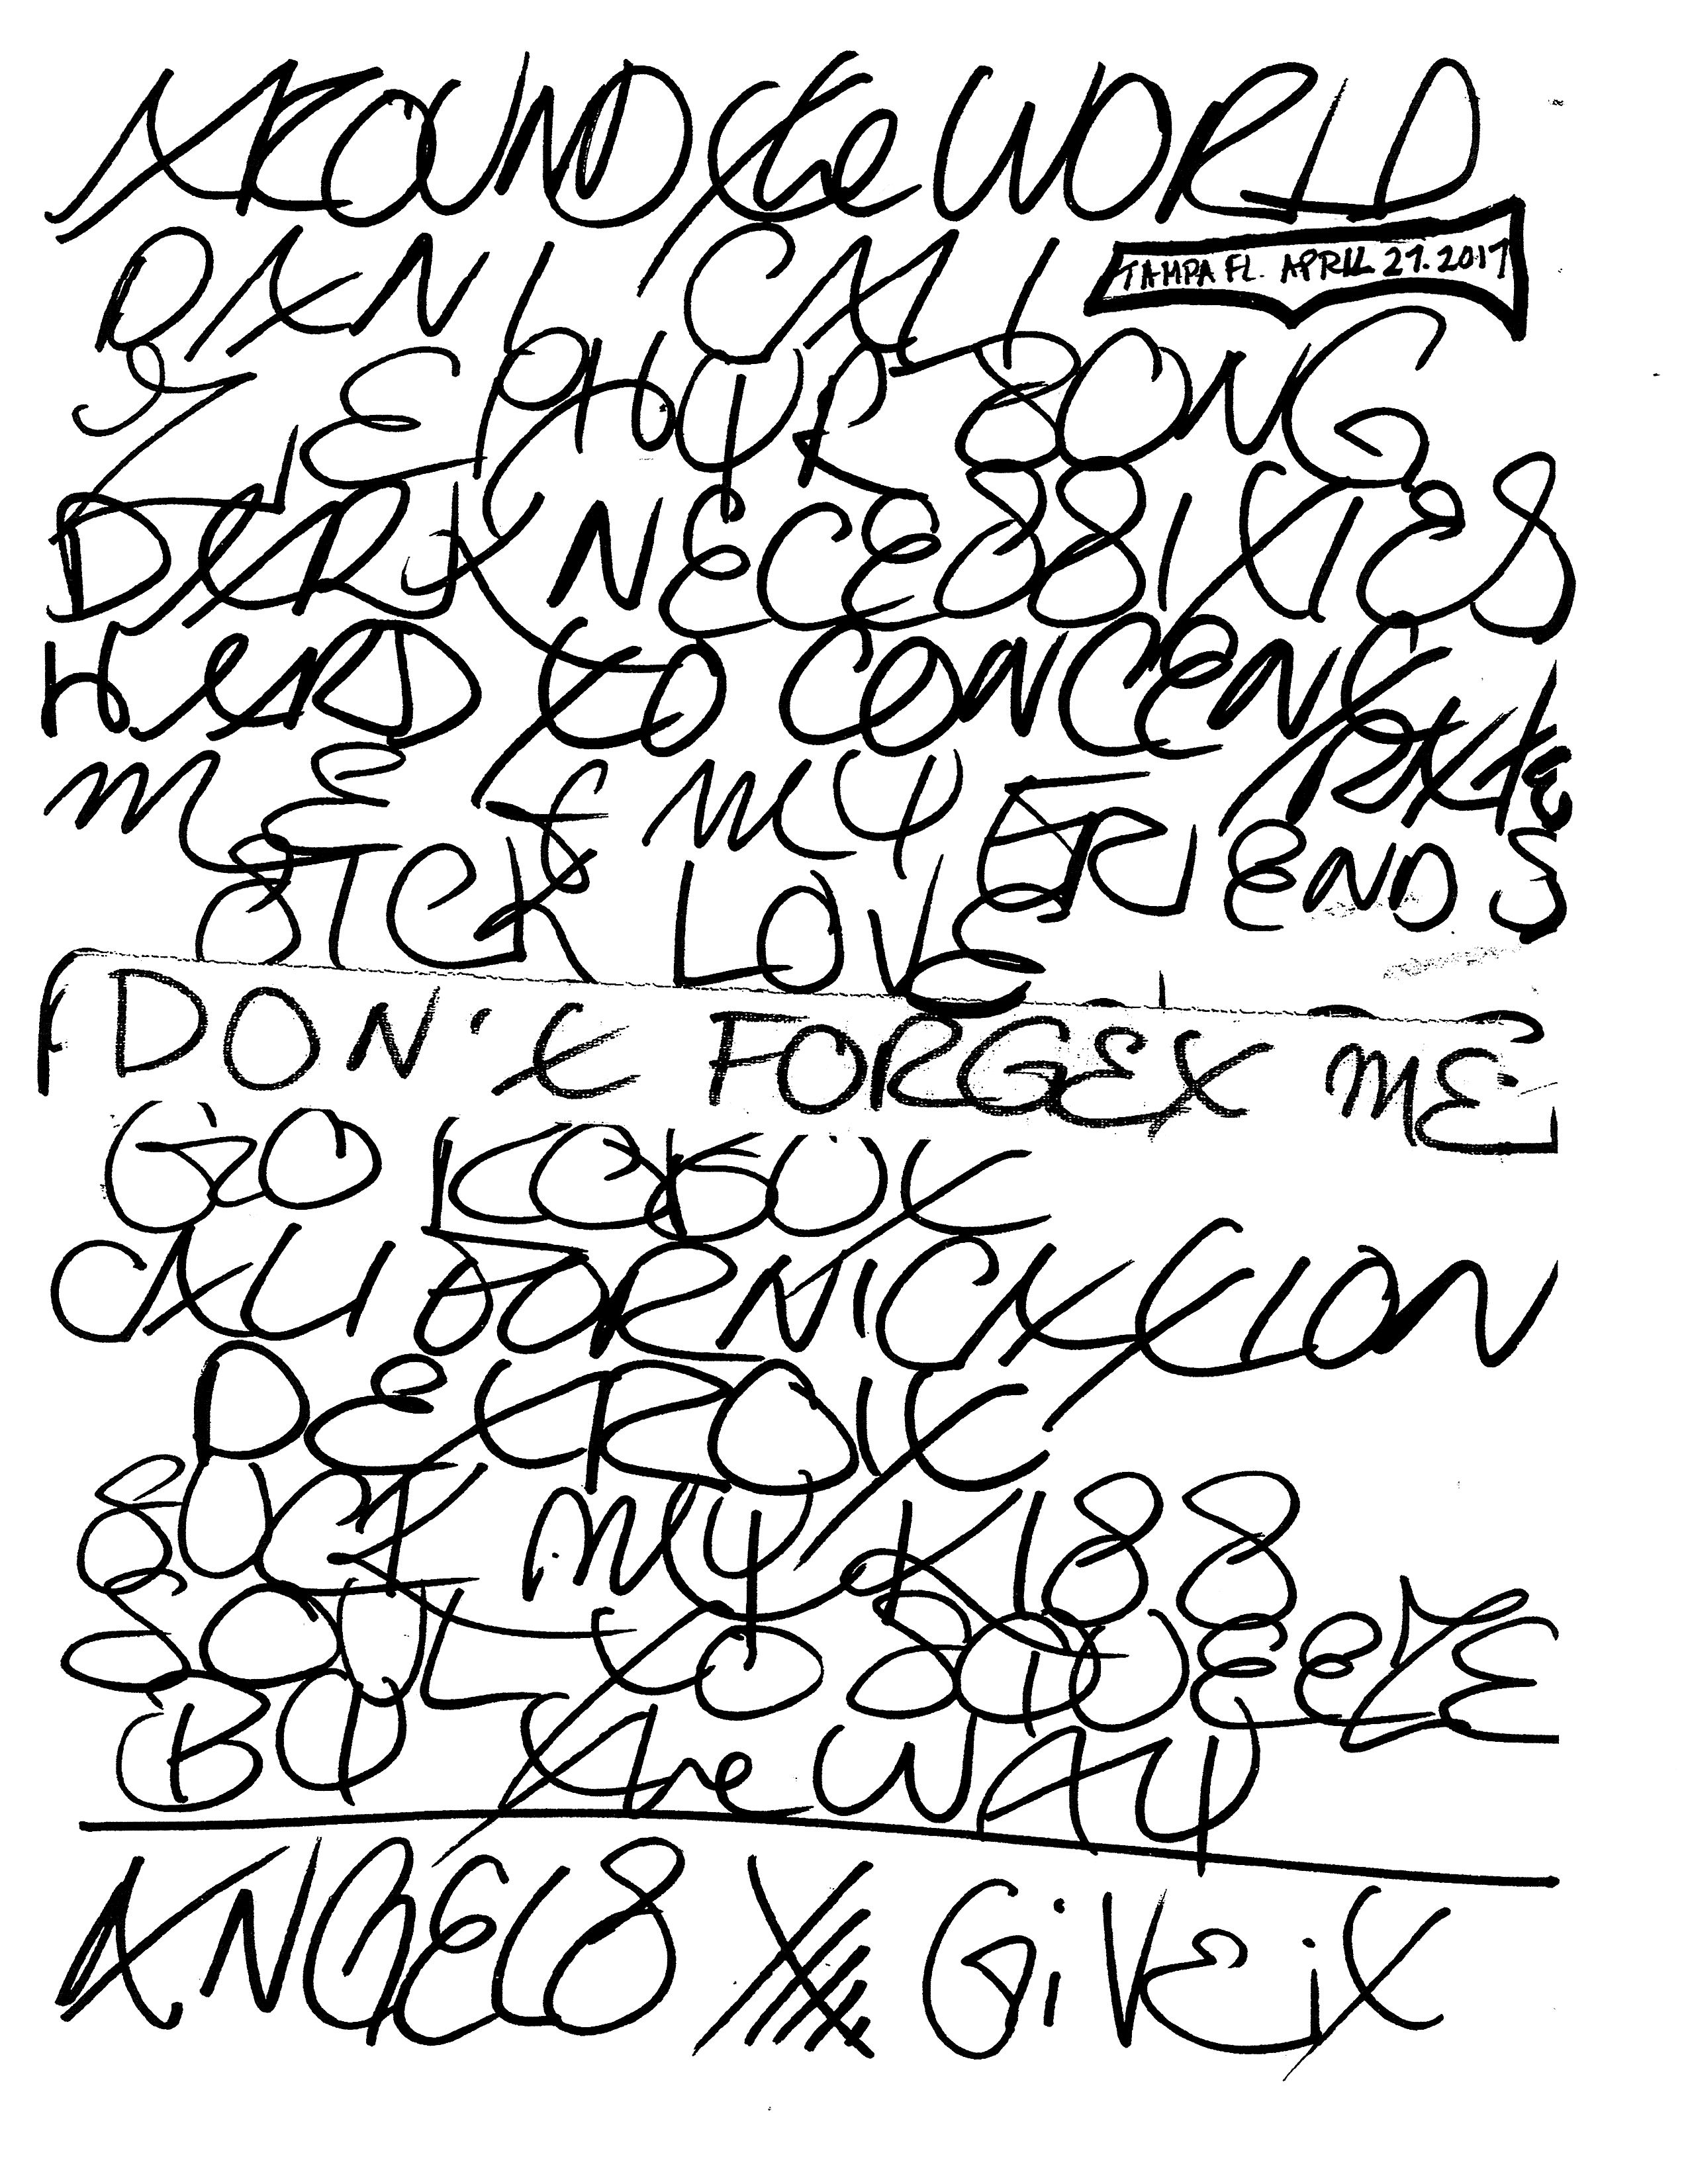 AROUND the WORLD
DANI CALI
TAMPA FL. APRIL 27.2017
ZEPHYR SONG
DARK NECESSITIES
HARD TO CONCENTRATE
ME & MY FRIENDS
SICK LOVE
DON'T FORGET ME
GO ROBOT
CALIFORNICATION
DETROIT
SUCK MY KISS
SOUL TO SQUEEZE
BY the WAY
ANGELS GiVE iT